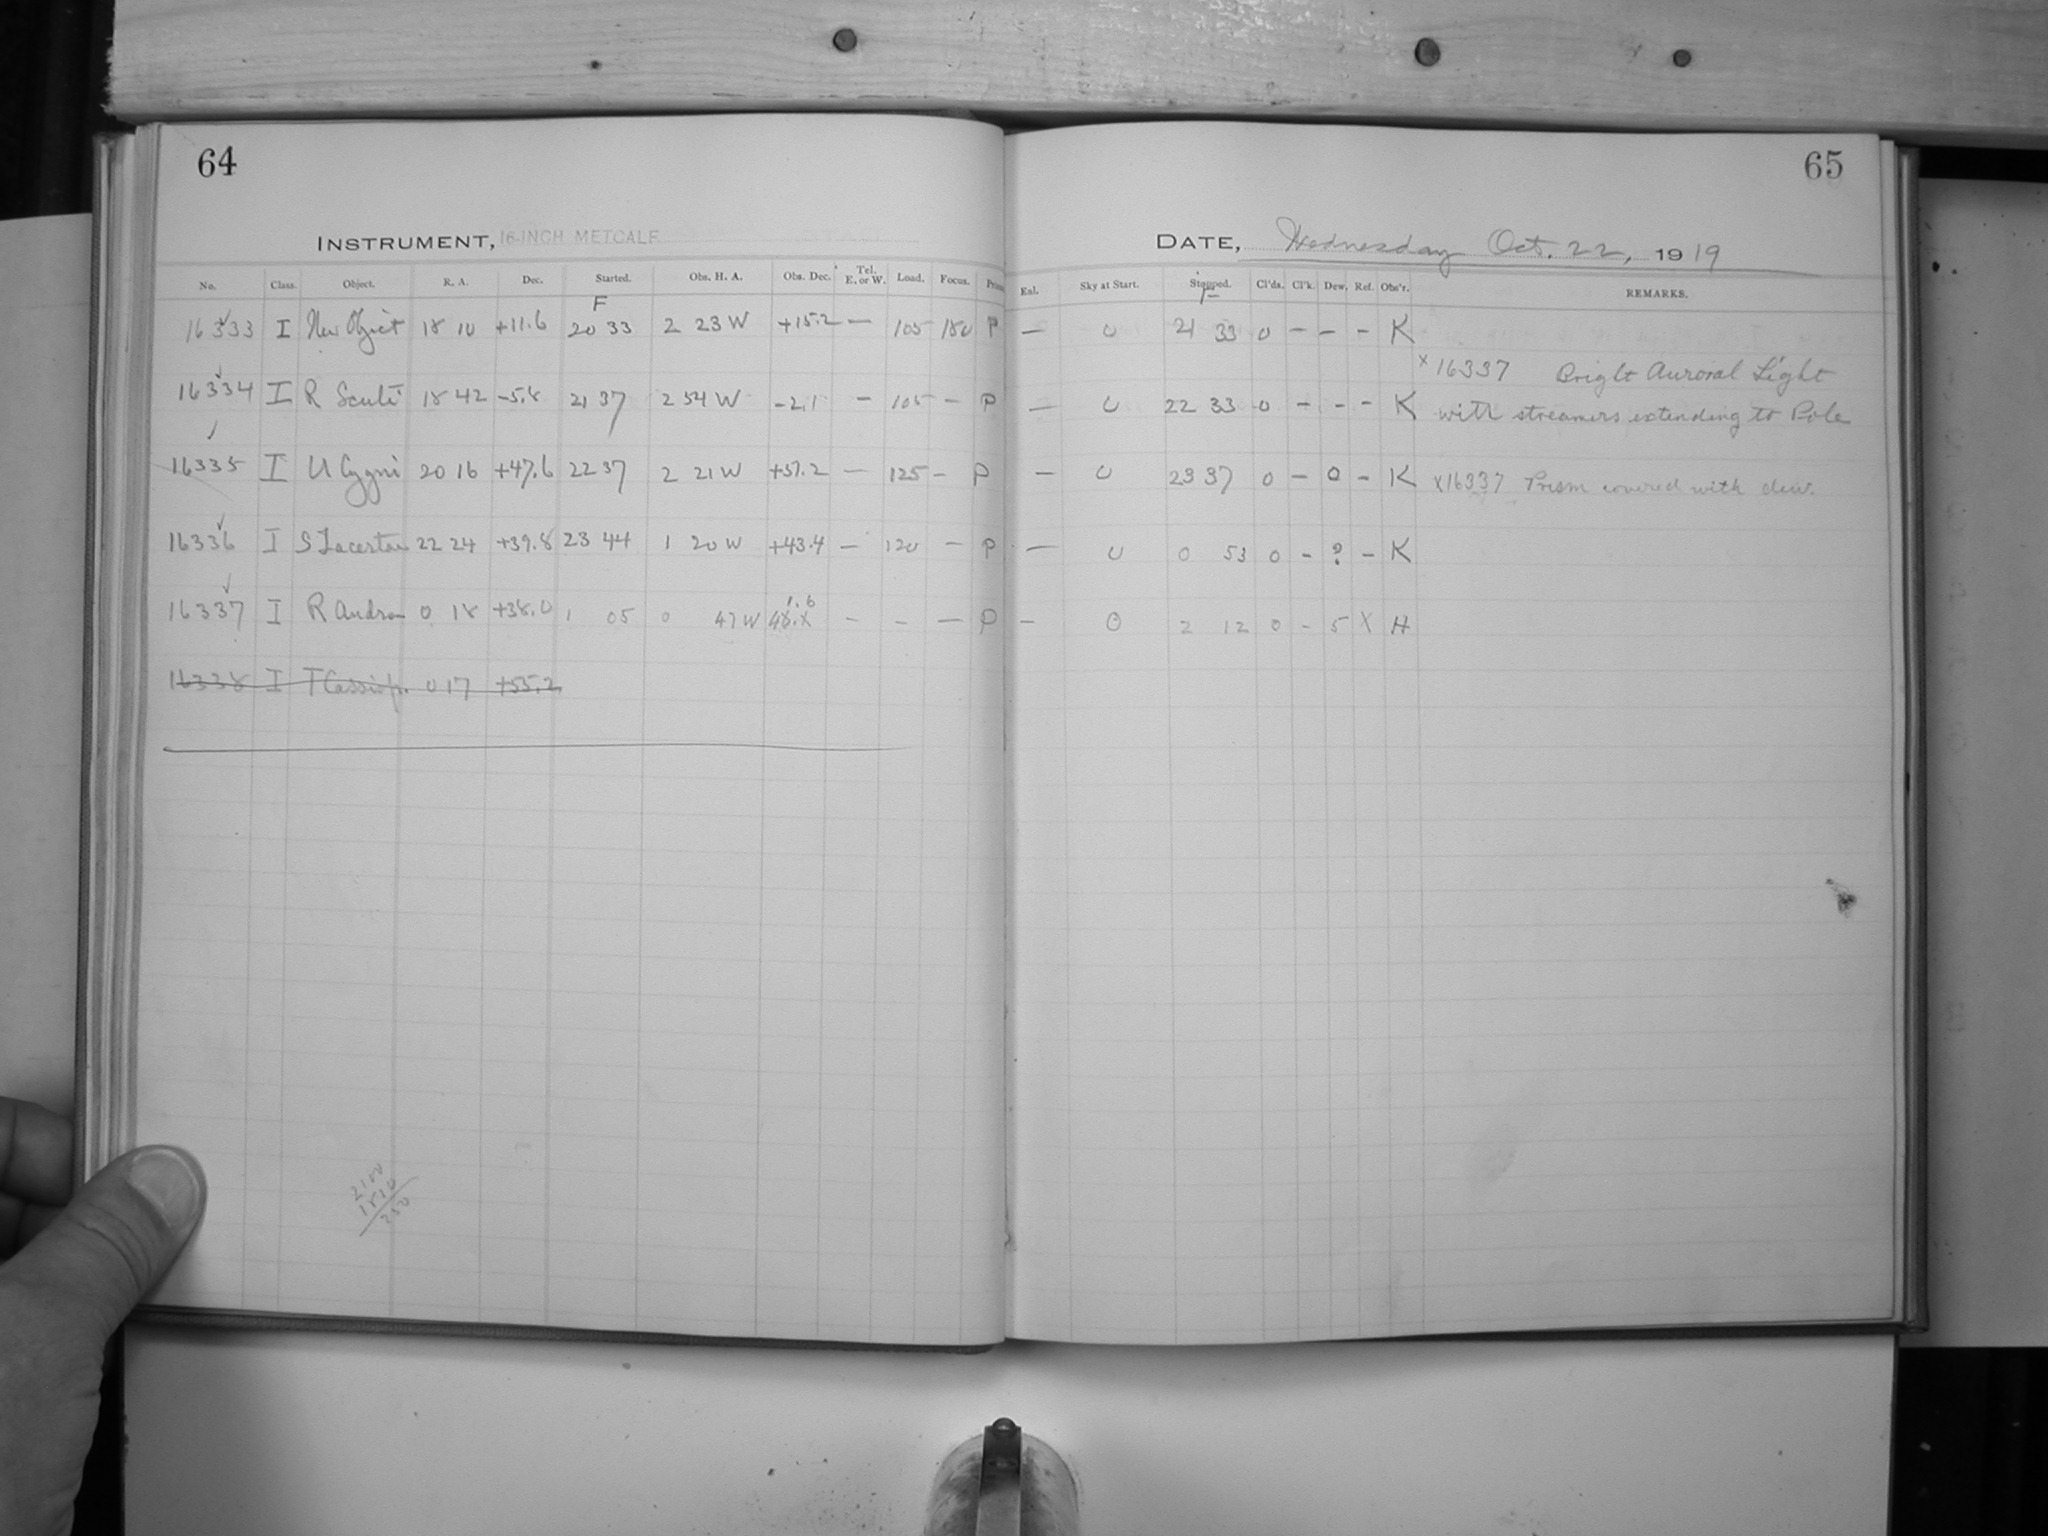 64
65
INSTRUMENT, 16-INCH METCALF
DATE, Wednesday Oct. 22, 1919
No. Class. Object. R. A. Dec. Started. Obs. H. A. Obs. Dec. Tel. E. or W. Load. Focus. Prism
Enl. Sky at Start. Stopped. Cl'ds. Cl'k. Dew. Ref. Obs'r. REMARKS.
F
F
16333 I New Object 18 10 +11.6 20 33 2 23 W +15.2 — 105 180 P — 0 21 33 0 – – – K
x 16337 Bright Auroral Light
16334 I R Scuti 18 42 -5.8 21 37 2 54 W -2.1 – 105 – P — 0 22 33 0 – – – K with streamers extending to Pole
16335 I U Cygni 20 16 +47.6 22 37 2 21 W +51.2 — 125 – P — 0 23 37 0 – 0 – K x16337 Prism covered with dew.
16336 I S Lacertae 22 24 +39.8 23 44 1 20 W +43.4 — 120 – P — 0 0 53 0 – ? – K
16337 I R Androm 0 18 +38.0 1 05 0 47 W 1.6 – – — P – 0 2 12 0 – 5 X H
16338 I T Cassiop. 0 17 +55.2
2100
1810
250